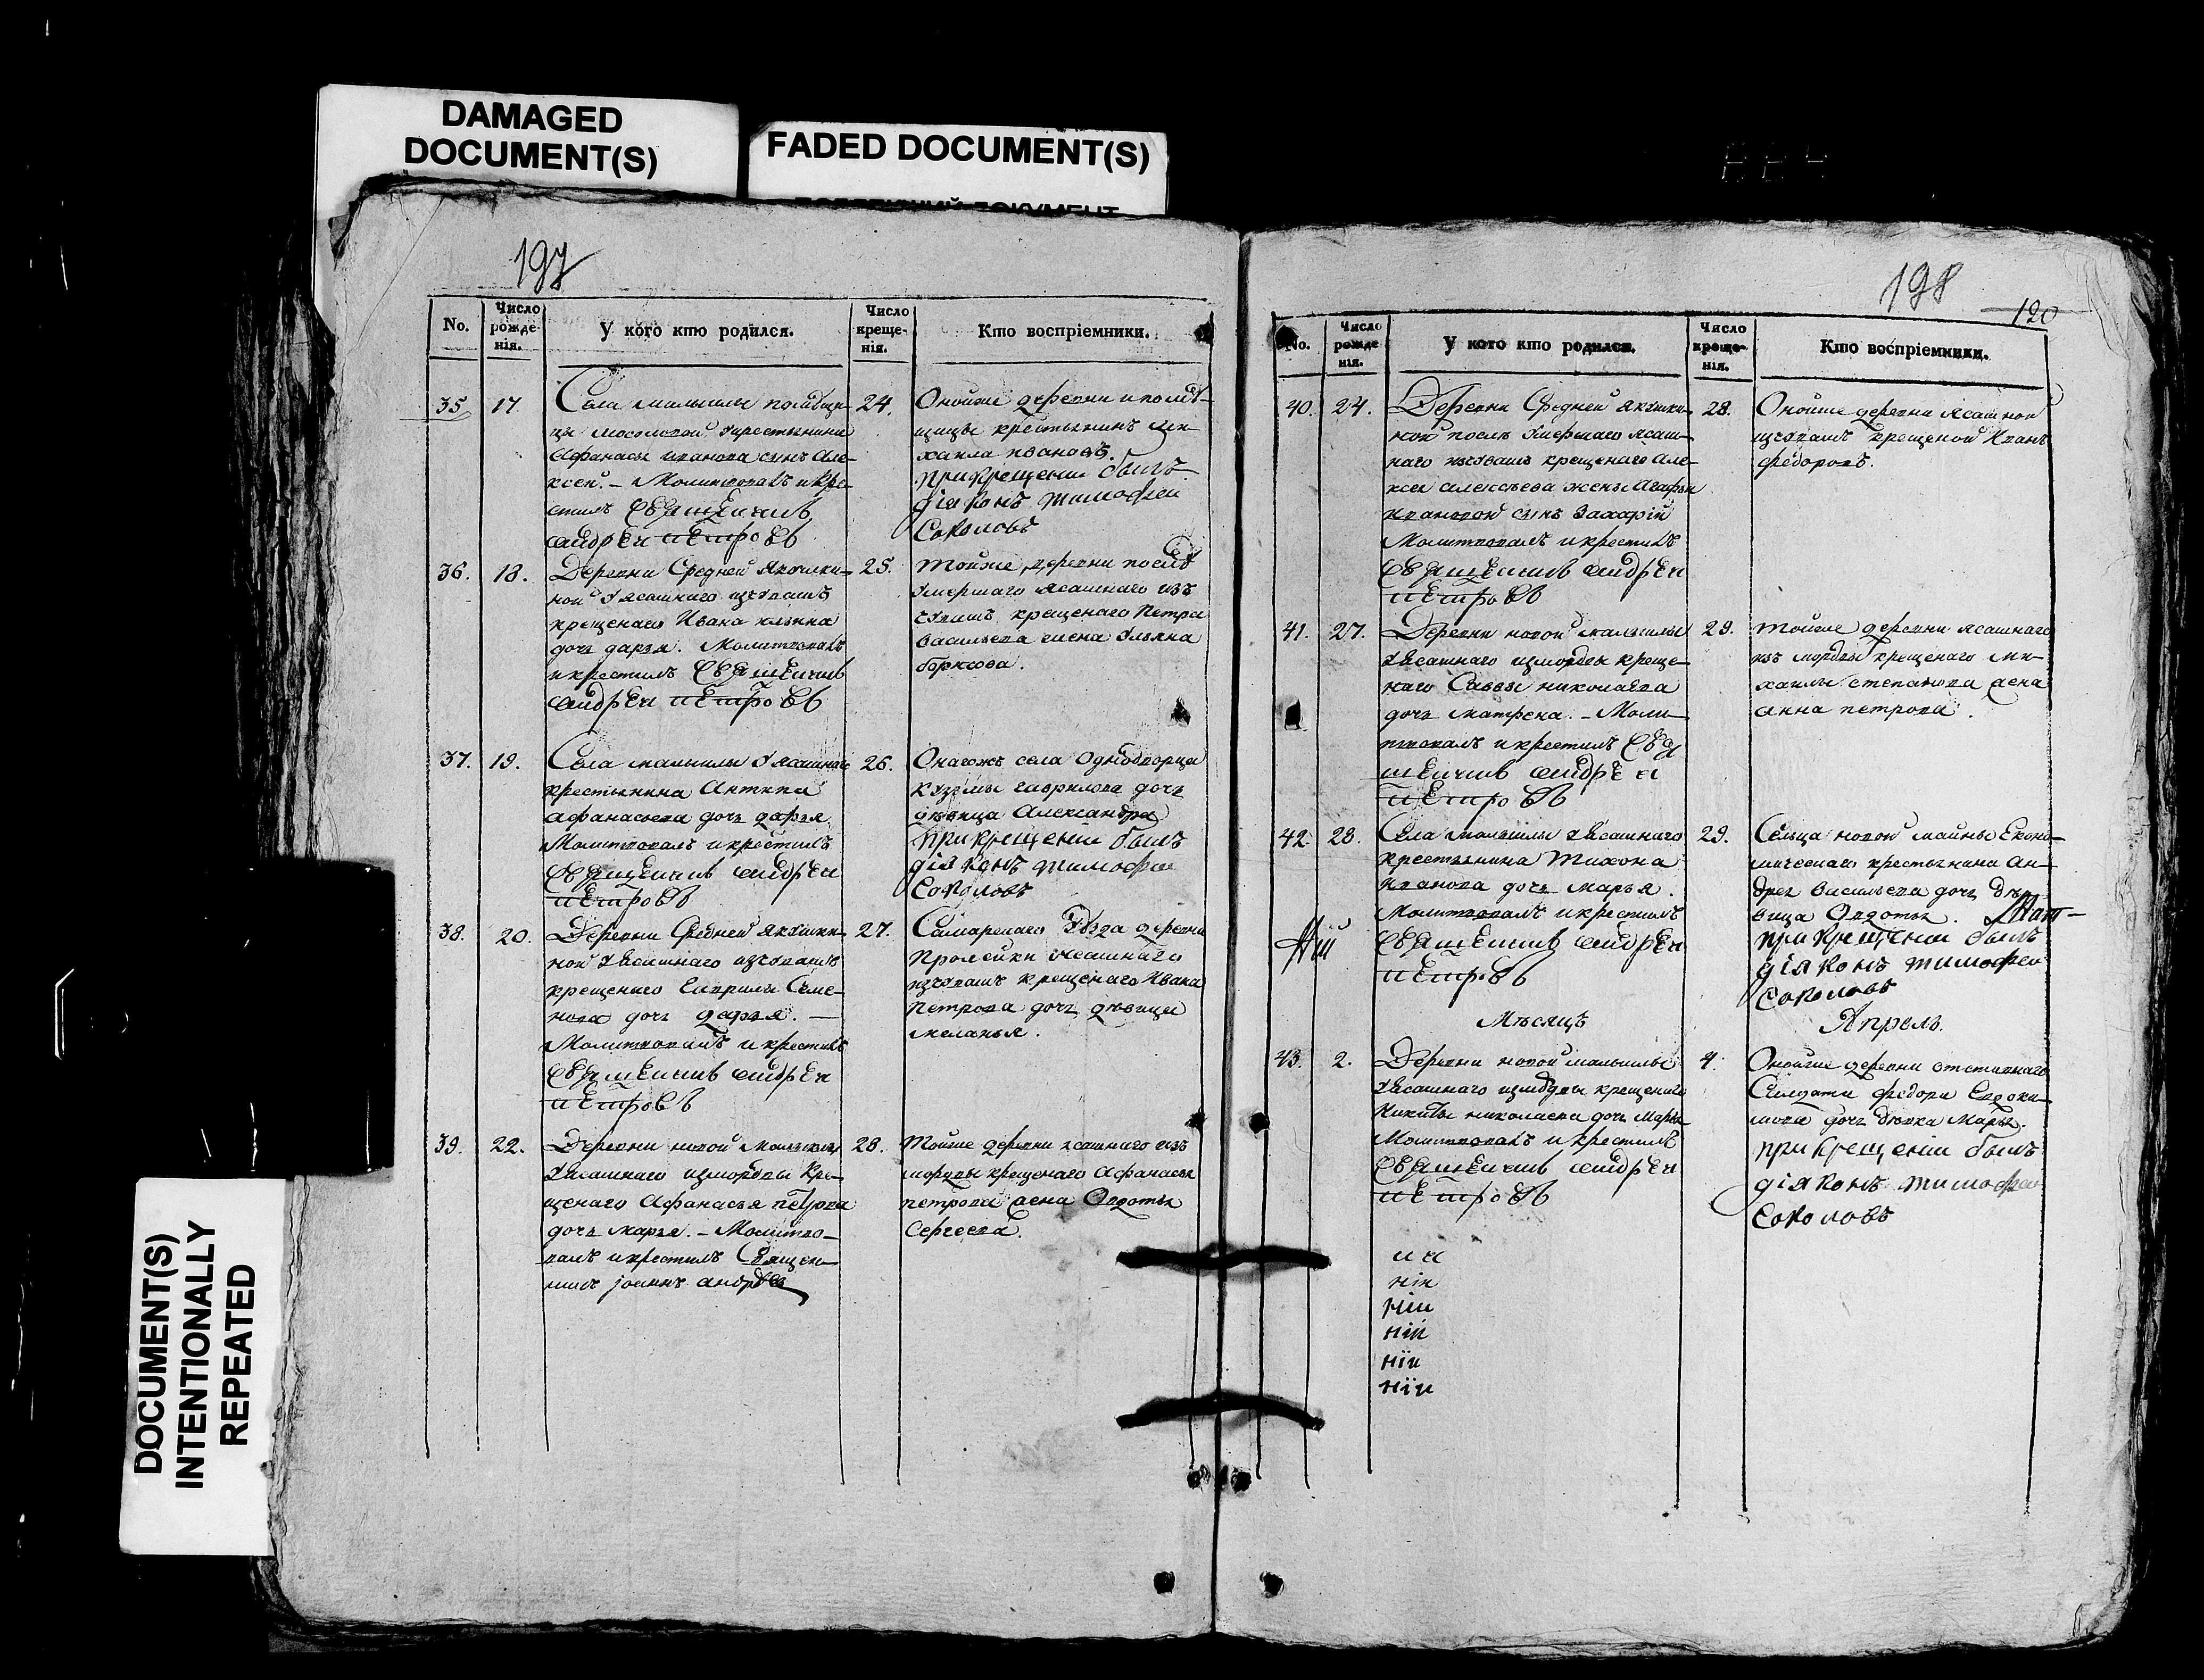 DAMAGED
DOCUMENT(S)
FADED DOCUMENT(S)
DOCUMENT(S)
INTENTIONALLY
REPEATED
197
No.
Число
рожде-
нія.
У кого кто родился.
Число
креще-
нія.
Кто воспріемники.
35
17.
Села малыклы помѣщи-
цы Мосоловой у крестьянина
Афанасья иванова сынъ Але-
ксей. – Молитвовалъ и кре-
стилъ священникъ
андрей петровъ
24.
Онойже деревни и помѣ-
щицы крестьянинъ ми-
хаила ивановъ.
при крещении былъ
діаконъ тимофеи
Соколовъ
36.
18.
Деревни Средней Якушки-
ной у ясашнаго изчувашъ
крещенаго Ивана ильина
дочь дарья. Молитвовалъ
и крестилъ священникъ
андрей петровъ
25.
Тойже деревни послѣ
умершаго ясашнаго изъ
чувашъ крещенаго Петра
Васильева жена Ульяна
борисова.
37.
19.
Села малыклы у ясашнаго
крестьянина Антипа
афанасьева дочь дарья
Молитвовалъ и крестилъ
священникъ андрей
петровъ
26.
Онагожъ села Однодворца
кузмы гаврилова дочь
дѣвица Александра
при крещении былъ
діаконъ тимофеи
Соколовъ
38.
20.
Деревни Средней Якушки-
ной у ясашнаго изчувашъ
крещенаго Гаврилы Семе-
нова дочь дарья. –
Молитвовалъ и крестилъ
священникъ андрей
петровъ
27.
Самарскаго уѣзда деревни
Пролейки ясашнаго
изчувашъ крещенаго Ивана
Петрова дочь дѣвица
меланья.
39.
22.
Деревни новой малыклы
у ясашнаго измордвы кре-
щенаго Афанасья петрова
дочь марья. – Молитво-
валъ и крестилъ Священ-
никъ іоаннъ андрѣевъ
28.
Тойже деревни ясашнаго изъ
мордвы крещенаго Афанасья
петрова жена Овдотья
Сергеева.
198
120
No.
Число
рожде
нія.
У кого кто родился.
Число
креще-
нія.
Кто воспріемники.
40.
24.
Деревни Средней якушки-
ной послѣ умершаго ясаш-
наго изчувашъ крещенаго Але-
ксея алексѣева жены Агафьи
ивановой сынъ Захарій
Молитвовалъ и крестилъ
священникъ андрей
петровъ
28.
Онойже деревни ясашной
изчувашъ крещеной Иванъ
федоровъ.
41.
27.
Деревни новой малыклы
у ясашнаго измордвы креще-
наго Савелы николаева
дочь матрена. – Моли-
твовалъ и крестилъ свя
щенникъ андрей
петровъ
29.
Тойже деревни ясашнаго
изъ мордвы крещенаго ми-
хаилы степанова жена
анна петрова.
42.
28.
Села малыклы у ясашнаго
крестьянина Тихона
иванова дочь марья.
Молитвовалъ и крестилъ
священникъ андрей
петровъ
29.
Сельца новой майны Еконо-
мическаго крестьянина ан-
дрея васильева дочь дѣ-
вица Овдотья.
при крещении былъ
діаконъ тимофеи
Соколовъ
Мѣсяцъ
Апрель.
43.
2.
Деревни новой малыклы
у ясашнаго измордвы крещенаго
Никиты николаева дочь Марья
Молитвовалъ и крестилъ
священникъ андрей
петровъ
4.
Онойже деревни отставнаго
Салдата федора Евдоки-
мова дочь дѣвка Марья.
при крещении былъ
діаконъ тимофеи
Соколовъ
ній
ніи
ній
нїи
нїи